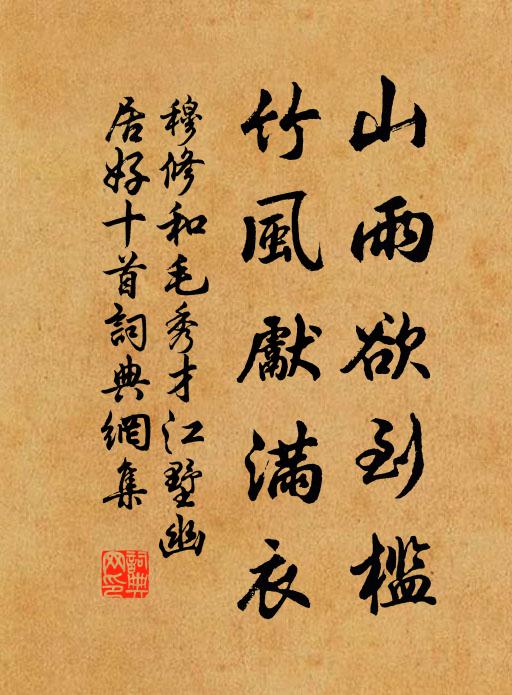 山雨欲到檻
竹風獻滿衣
穆修和毛秀才江墅幽
居好十首詞典網集
詞典網印